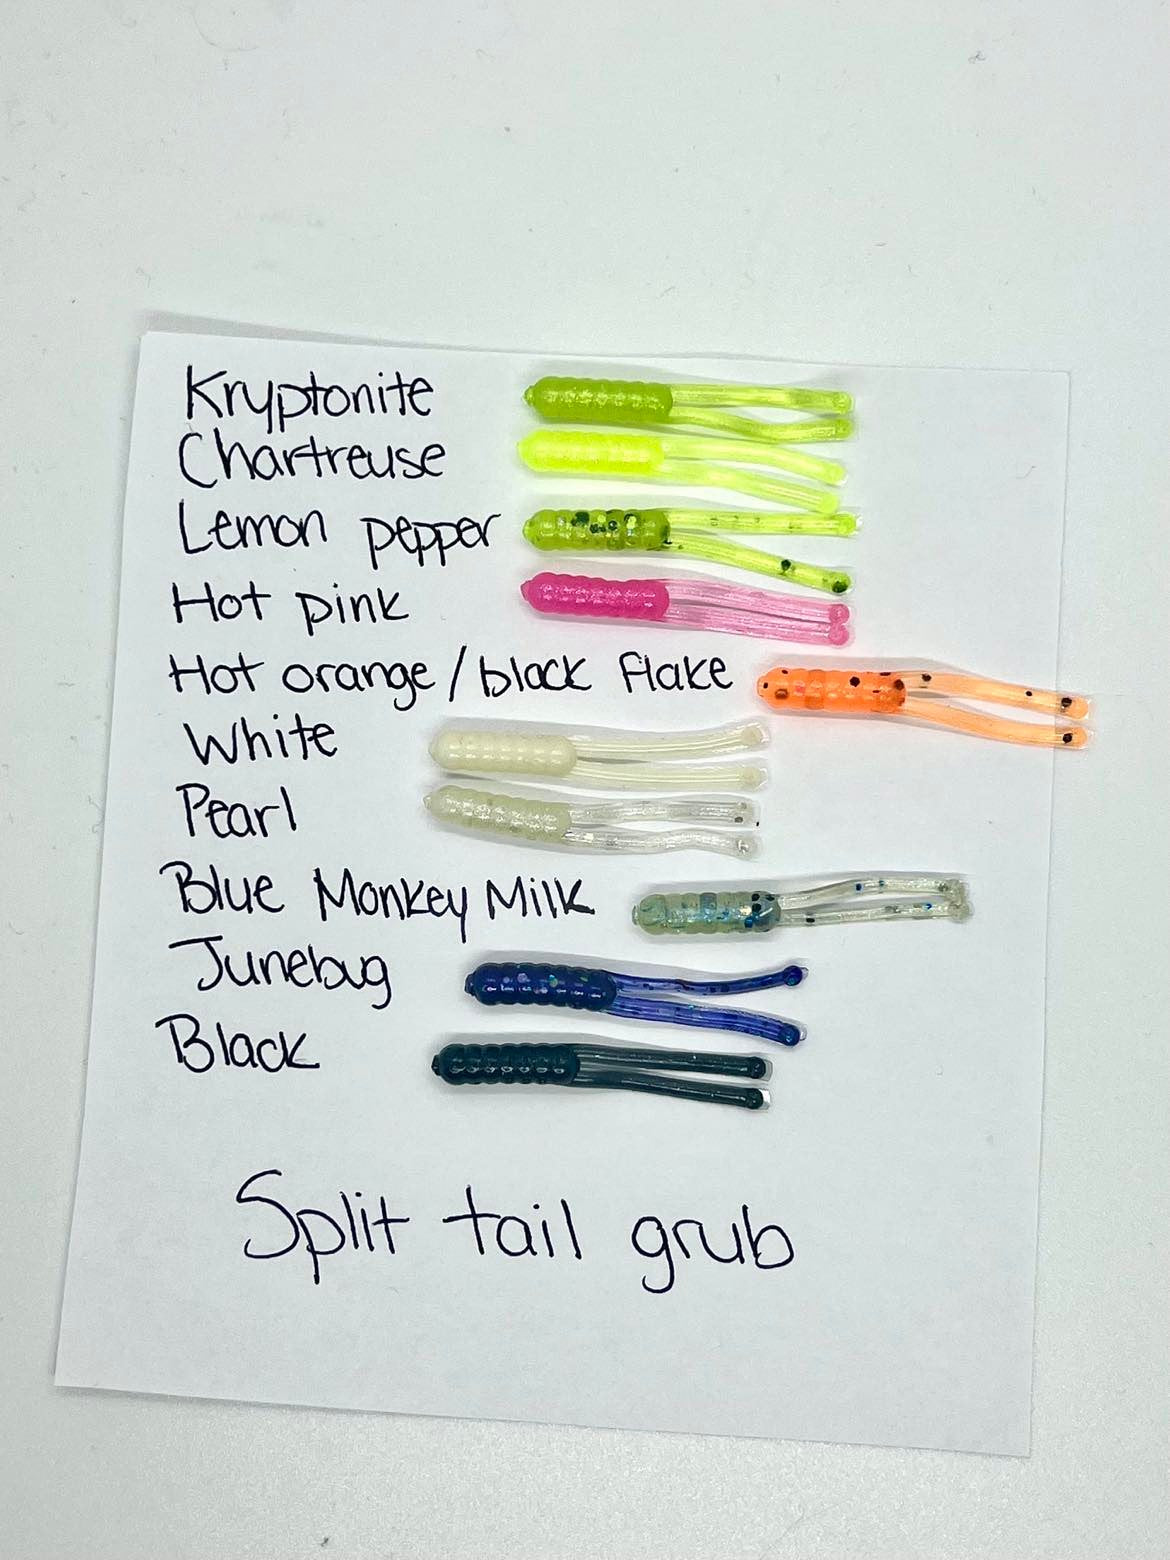 Kryptonite
Chartreuse
Lemon pepper
Hot pink
Hot orange/black flake
White
Pearl
Blue Monkey Milk
Junebug
Black
Split tail grub